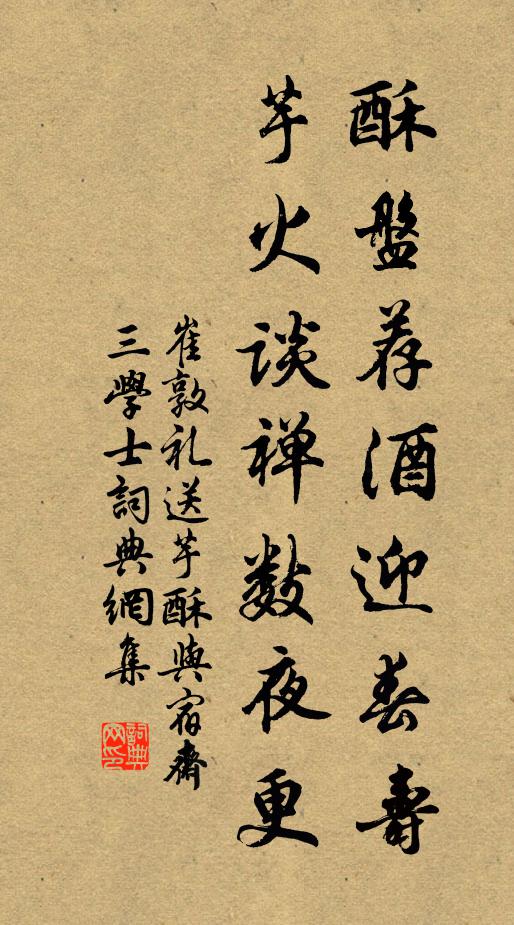 酥盤荐酒迎春壽
芋火談禅數夜更
崔敦礼送芋酥與宿齋
三學士詞典網集
詞典网印